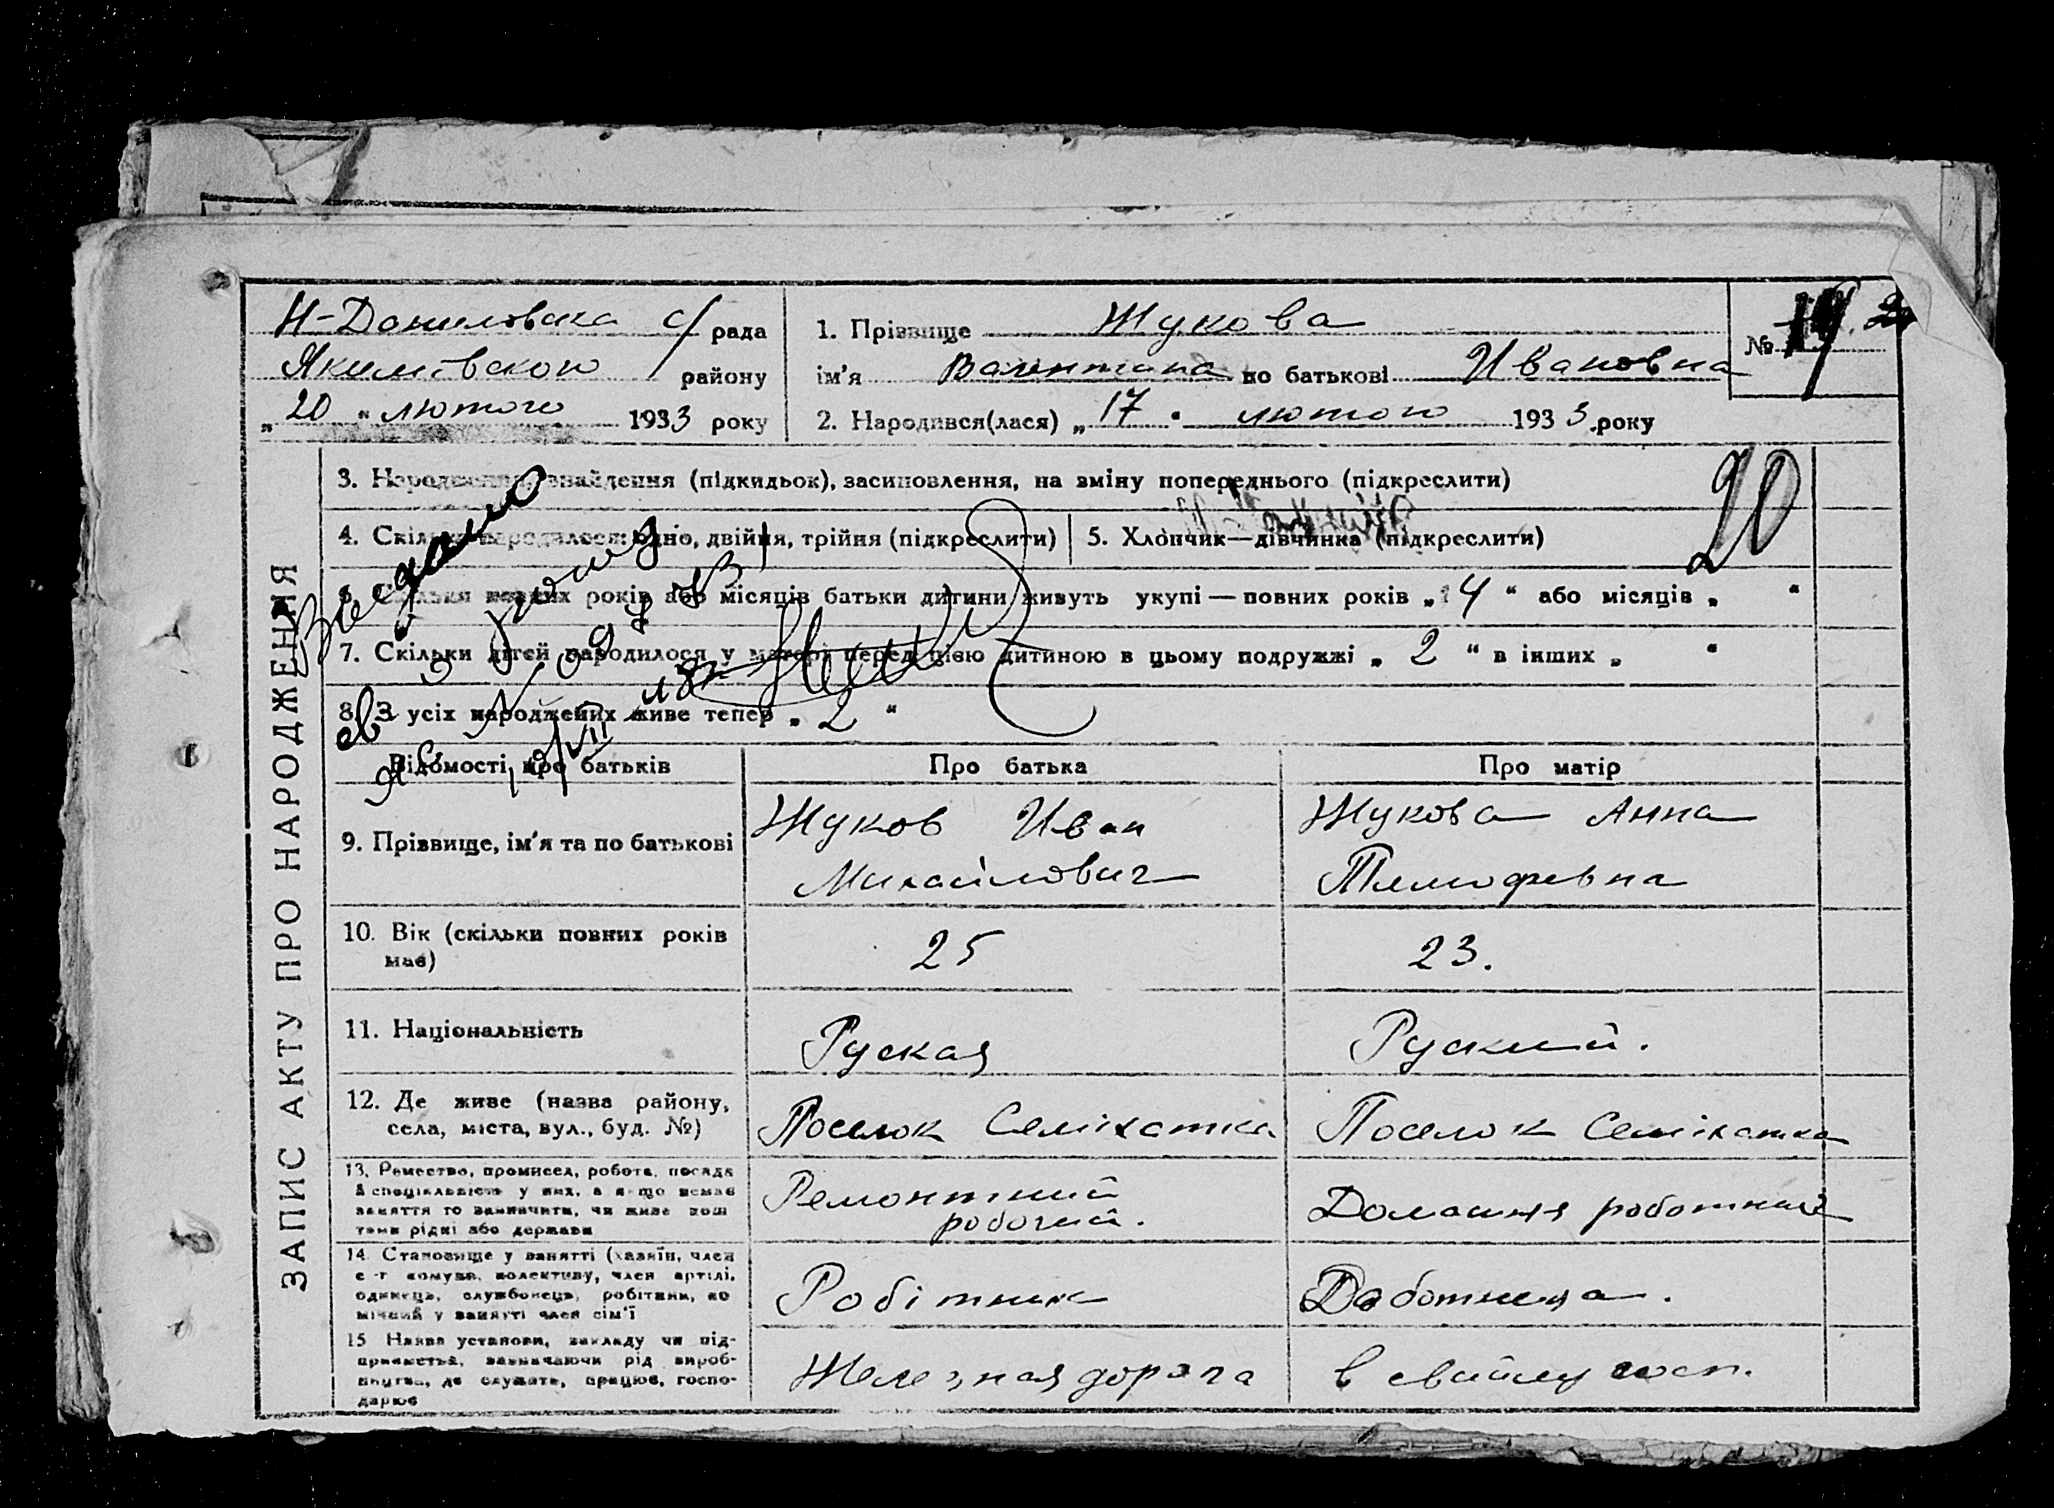 ЗАПИС АКТУ ПРО НАРОДЖЕННЯ
Н-Даниловска с/рада
Якимівского району
„20“ лютого 1933 року
1. Прізвище Жукова
ім'я Валентина по батькові Ивановна
2. Народився(лася) „17. лютого 1933 року
№ 19
3. Народження, знайдення (підкидьок), засиновлення, на зміну попереднього (підкреслити)
20
4. Скільки народилося: одно, двійня, трійня (підкреслити)
5. Хлопчик—дівчинка (підкреслити)
6. Скільки повних років або місяців батьки дитини живуть укупі — повних років „4“ або місяців „ “
7. Скільки дітей народилося у матері перед цією дитиною в цьому подружжі „2“ в інших „ “
8. З усіх народжених живе тепер „2“
Видано
Відомості про батьків
Про батька
Про матір
9. Прізвище, ім'я та по батькові
Жуков Иван
Михайлович
Жукова Анна
Тимофевна
10. Вік (скільки повних років
має)
25
23.
11. Національність
Руская
Руский.
12. Де живе (назва району,
села, міста, вул., буд. №)
Поселок Семіхатка
Поселок Семіхатка
13. Ремество, промисел, робота, посада
й спеціяльність у них, а якщо немає
заняття то зазначити, чи живе кош
тами рідні або держави
Ремонтний
робочий.
Домашня роботниця
14. Становище у занятті (хазяїн, член
с-г комуни, колективу, член артілі,
одинець, службовець, робітник, по
мічний у занятті член сім'ї
Робітник
Работница.
15. Назва установи, закладу чи під-
приємства, зазначаючи рід вироб-
ництва, де служить, працює, госпо-
дарює
Железная дорога
в свойму госп.